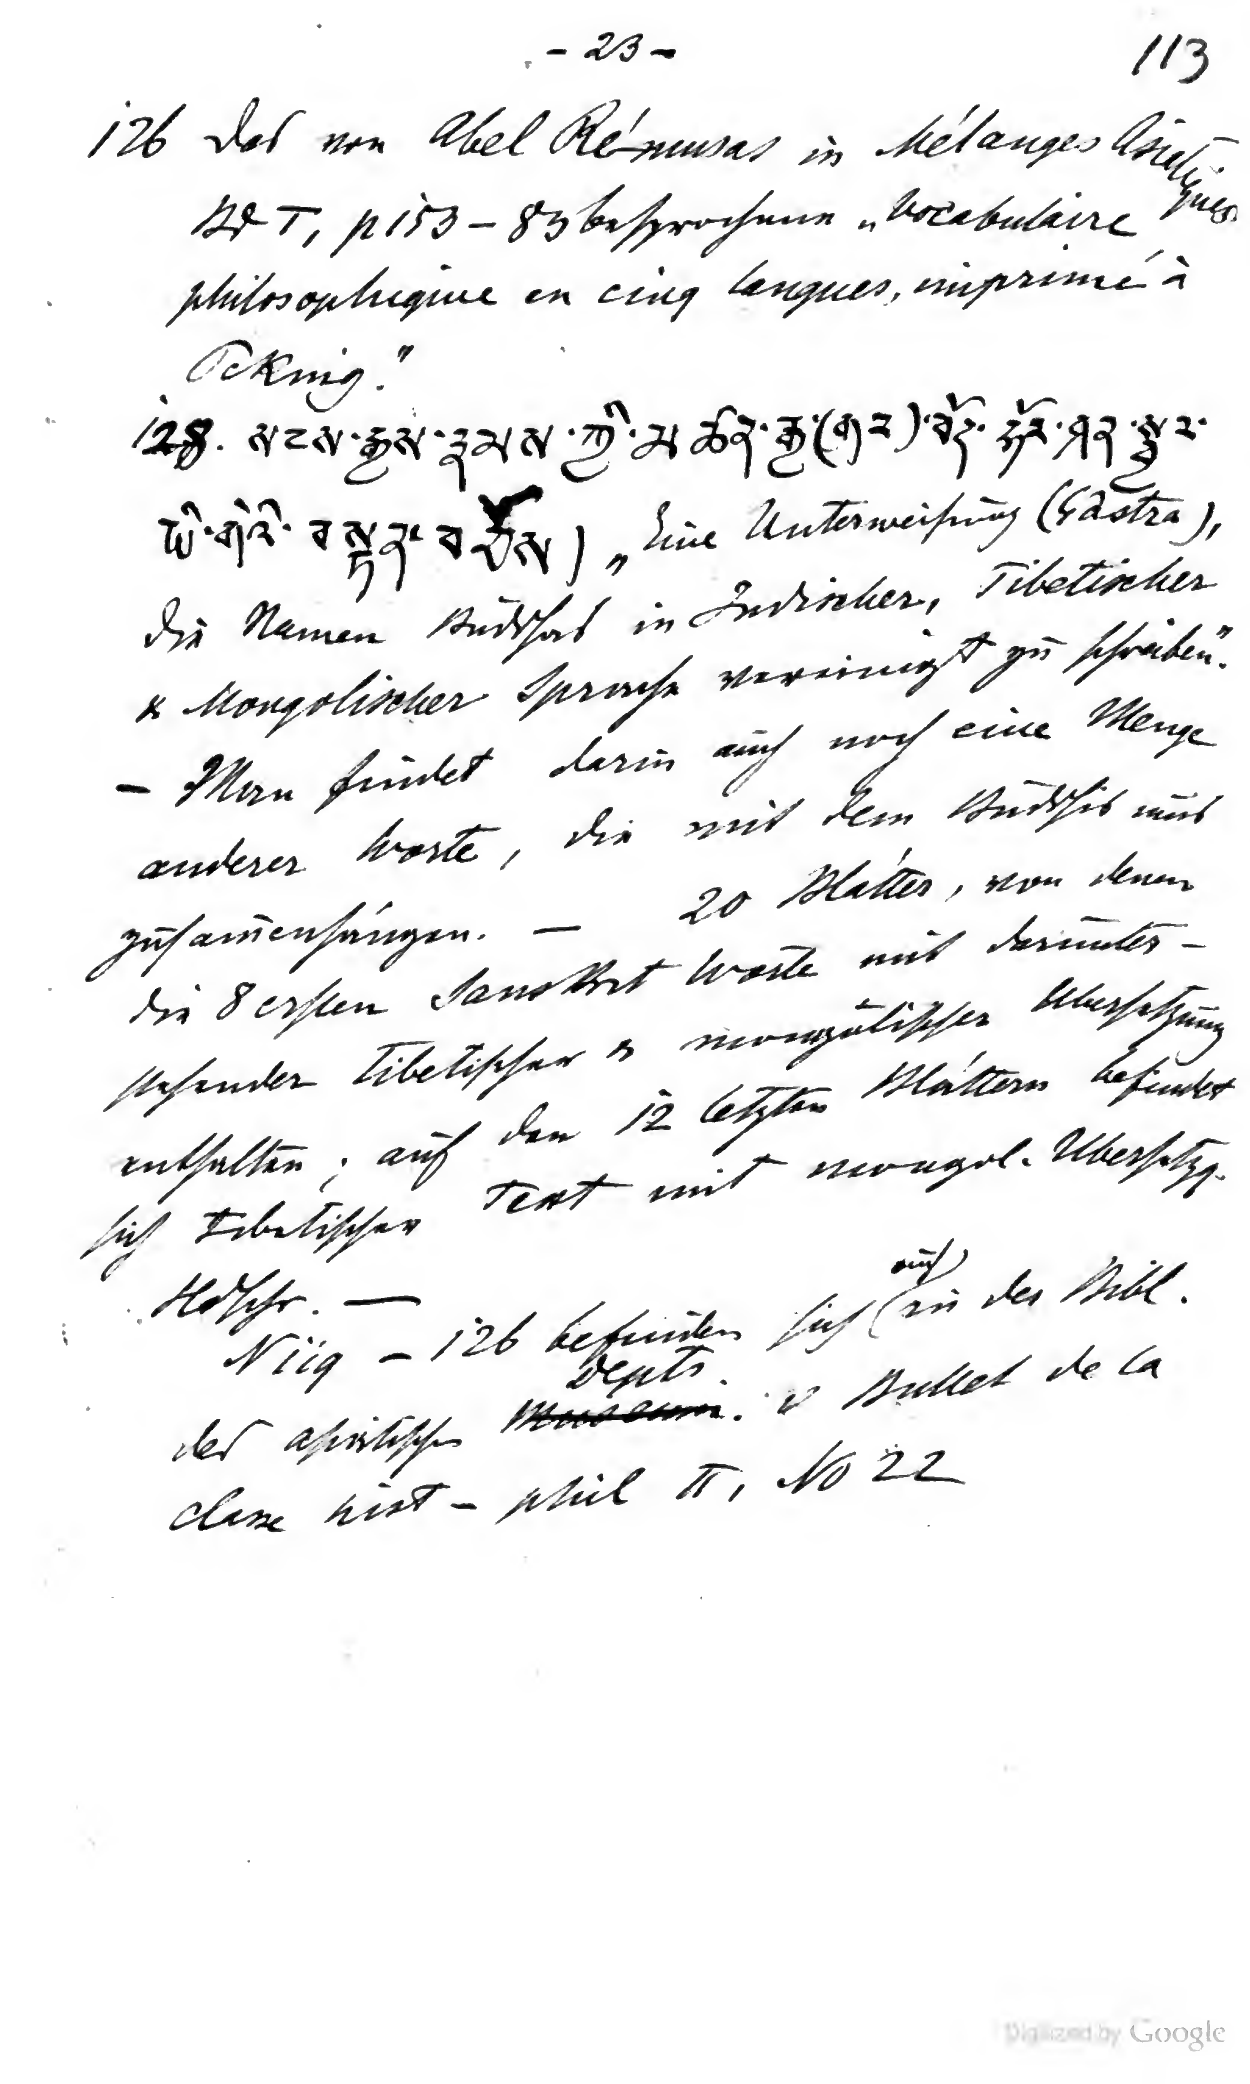 - 23 -
113
126 das von Abel Rémusas in Mélanges Asiatiques
Bd I, p 153 - 83 besprochene „Vocabulaire
philosophique en cinq langues, imprimé à
Peking."
128. སངས་རྒྱས་རྣམས་ཀྱི་མཚན་རྒྱ་(གར)་བོད་ཧོར་ཤན་སྦྱར་
ཡི་གེའི་བསྟན་བཅོས) „Eine Unterweisung (Çastra),
die Namen Buddhas in Indischer, Tibetischer
& Mongolischer Sprache vereinigt zu schreiben".
- Man findet darin auch noch eine Menge
anderer Worte, die mit dem Buddhismus
zusam̄enhängen. — 20 Blätter, von denen
die 8 ersten Sanskrit Worte mit darunter-
stehender tibetischer & mongolischer Übersetzung
enthalten; auf den 12 letzten Blättern befindet
sich tibetischer Text mit mongol. Übersetzg.
Hdschr. —
N 119 - 126 befinden sich (auch) in der Bibl.
des asiatischen Depts. v Bullet de la
classe hist - phil II, No 22
Digitized by Google